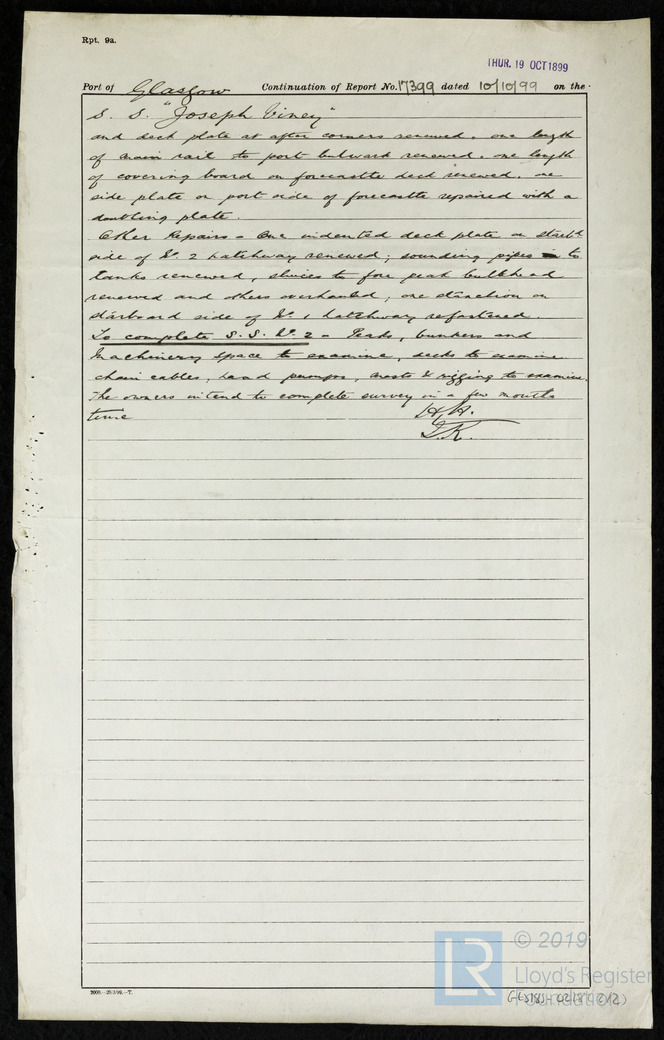 Rpt. 9a.
THUR. 19 OCT 1899
Port of Glasgow Continuation of Report No. 17399 dated 10/10/99 on the
S. S. "Joseph Viney"
and deck plate at after corners renewed. one length
of main rail to port bulwark renewed. one length
of covering board on forecastle deck renewed. one
side plate on port side of forecastle repaired with a
doubling plate.
Other Repairs = One indented deck plate on starbd
side of No. 2 hatchway renewed; sounding pipes to
tanks renewed, sluices to fore peak bulkhead
renewed and others overhauled, one stanchion on
starboard side of No. 1 hatchway refastened.
To complete S. S. No. 2 = Peaks, bunkers and
Machinery space to examine, decks to examine
chain cables, hand pumps, masts & rigging to examine.
The owners intend to complete survey in a few months
time
H.H.
J.K.
© 2019
LR
Lloyd's Register
Foundation